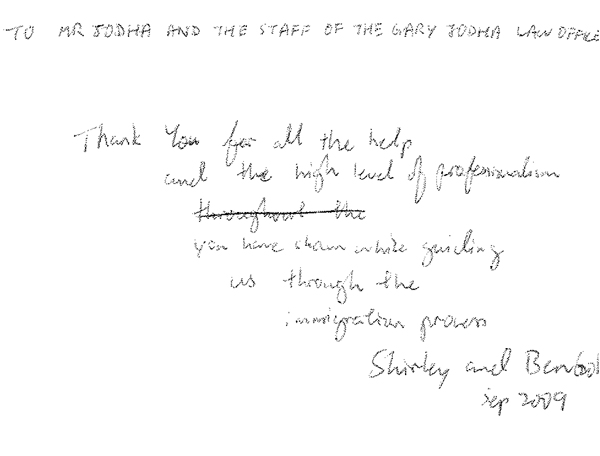 TO MR JODHA AND THE STAFF OF THE GARY JODHA LAW OFFICE
Thank You for all the help
and the high level of professionalism
throughout the
you have shown while guiding
us through the
immigration process
Shirley and
Sep 2009